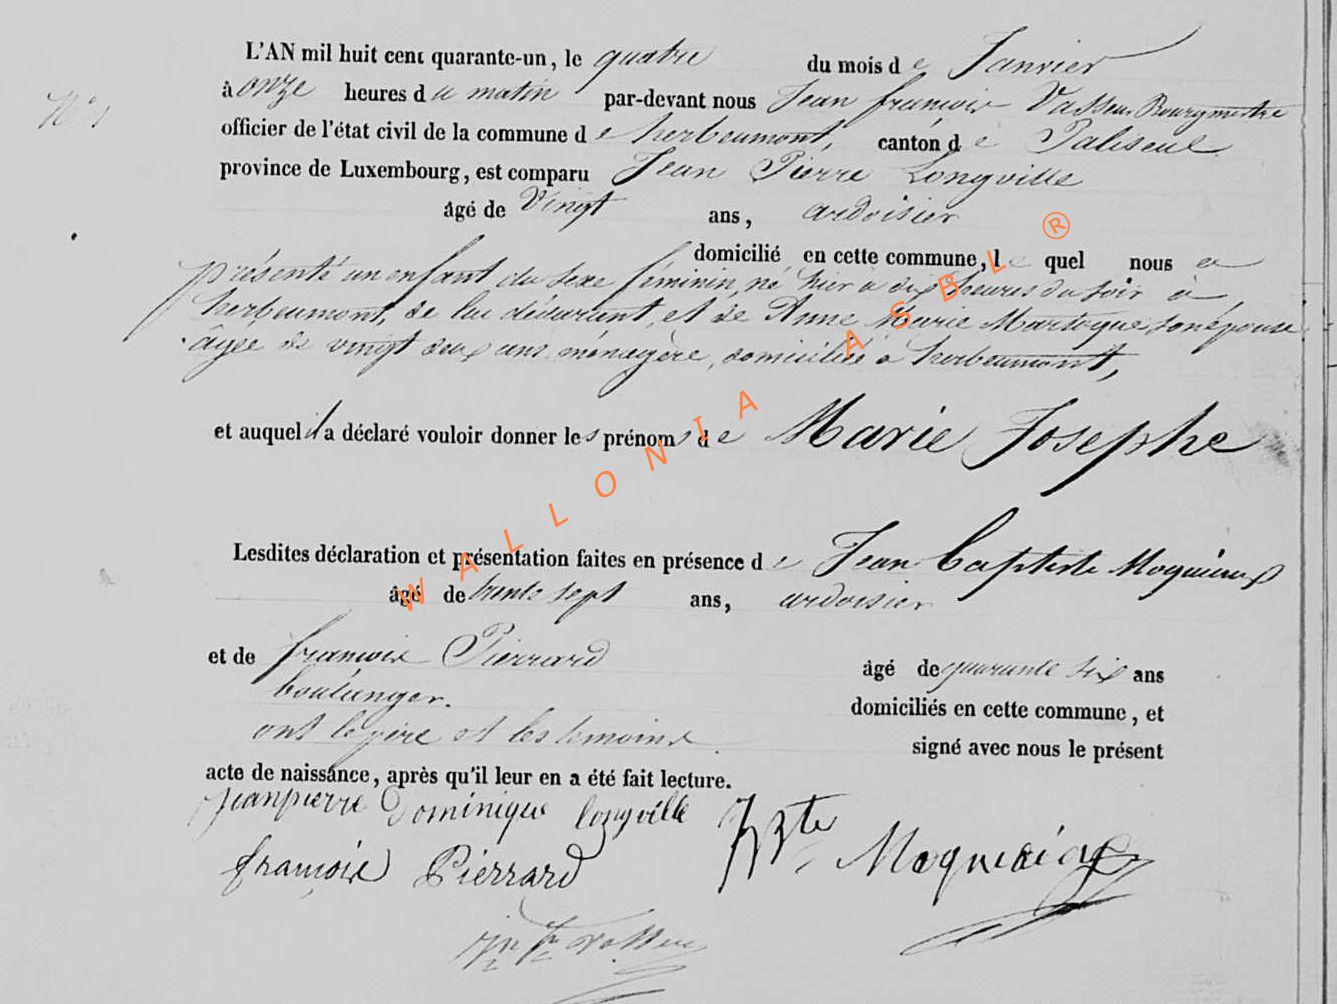 L'AN mil huit cent quarante-un, le quatre du mois de Janvier
N° 1
à onze heures du matin par-devant nous Jean françois Vasseur Bourgmestre
officier de l'état civil de la commune de herbeumont, canton de Paliseul
province de Luxembourg, est comparu Jean Pierre Longville
âgé de Vingt ans, ardoisier
domicilié en cette commune, le quel nous a
présenté un enfant du sexe féminin, né hier à dix heures du soir à
herbeumont, de lui déclarant, et de Anne Marie Martogue son épouse
âgée de vingt deux ans ménagère, domiciliée à herbeumont,
et auquel il a déclaré vouloir donner les prénoms de Marie Josephe
Lesdites déclaration et présentation faites en présence de Jean Baptiste Moquiaux
âgé de trente sept ans, ardoisier
et de françois Pierrard âgé de quarante six ans
boulanger. domiciliés en cette commune, et
ont le père et les temoins signé avec nous le présent
acte de naissance, après qu'il leur en a été fait lecture.
jeanpierre Dominique longville
françois Pierrard
WALLONIA ASBL ®